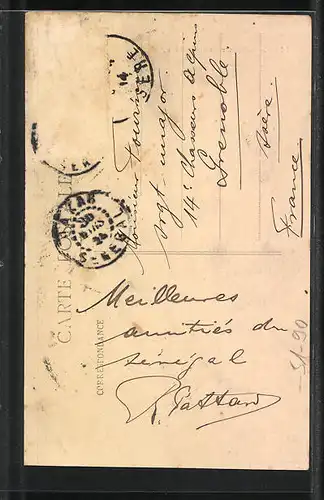 CARTE POSTALE
CORRESPONDANCE
Monsieur Fournier
sergt major
14e Chasseurs Alpins
Grenoble
Isère
France
Meilleures
amitiés du
Sénégal
SENEGAL